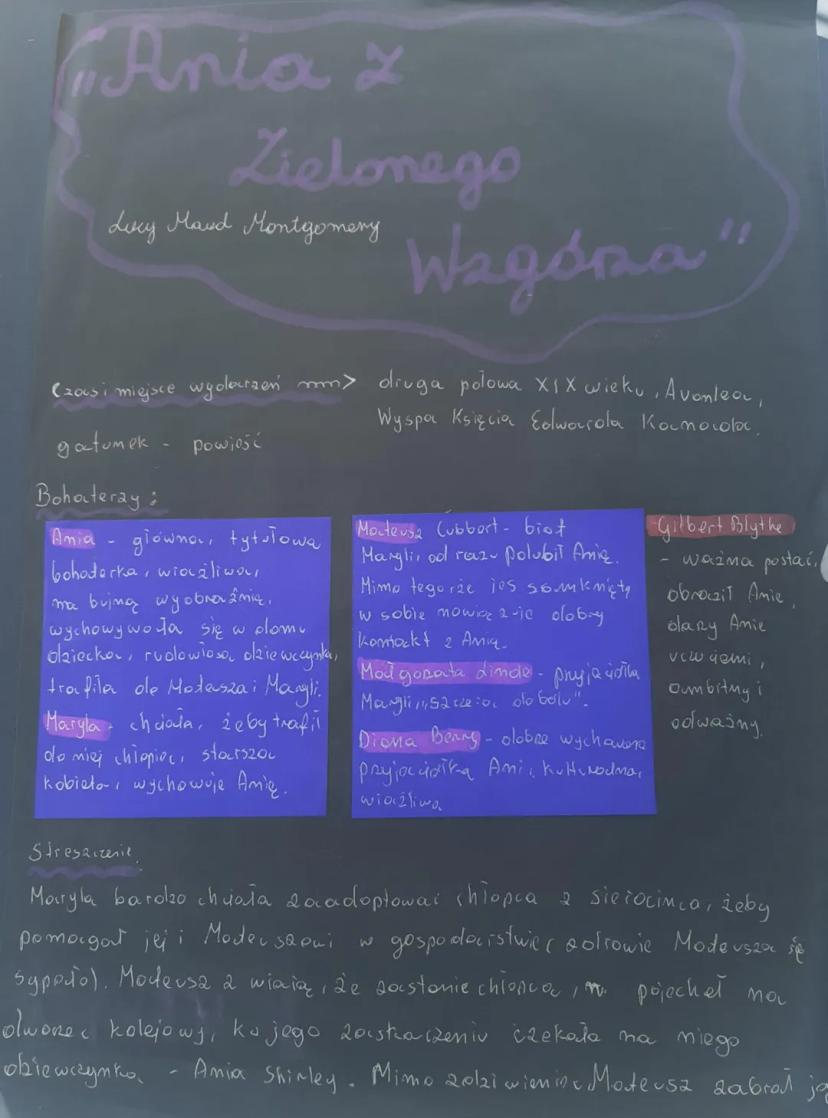 „Ania z
Zielonego
Wzgórza"
Lucy Maud Montgomery
Czas i miejsce wydarzeń ~~~> druga połowa XIX wieku, Avonlea,
Wyspa Księcia Edwarda Kanada.
gatunek - powieść
Bohaterzy:
Ania - główna, tytułowa
bohaterka, wrażliwa,
ma bujną wyobraźnię,
wychowywała się w domu
dziecka, rudowłosa dziewczynka,
trafiła do Mateusza i Maryli.
Maryla - chciała, żeby trafił
do niej chłopiec, starsza
kobieta, wychowuje Anię.
Mateusz Cubbert - brat
Maryli, od razu polubił Anię.
Mimo tego że jes zamknięty
w sobie nawiązuje dobry
kontakt z Anią.
Małgorzata Linde - przyjaciółka
Maryli, „szczera do bólu".
Diana Barry - dobrze wychowana
przyjaciółka Ani, kulturalna,
wrażliwa
Gilbert Blythe
- ważna postać,
obraził Anię,
darzy Anię
uczuciami,
ambitny i
odważny.
Streszczenie.
Maryla bardzo chciała zaadoptować chłopca z sierocińca, żeby
pomagał jej i Mateuszowi w gospodarstwie (zdrowie Mateusza się
sypało). Mateusz z wiarą, że zastanie chłopca, pojechał na
dworzec kolejowy, ku jego zaskoczeniu czekała na niego
dziewczynka - Ania Shirley. Mimo zdziwienia Mateusz zabrał ją